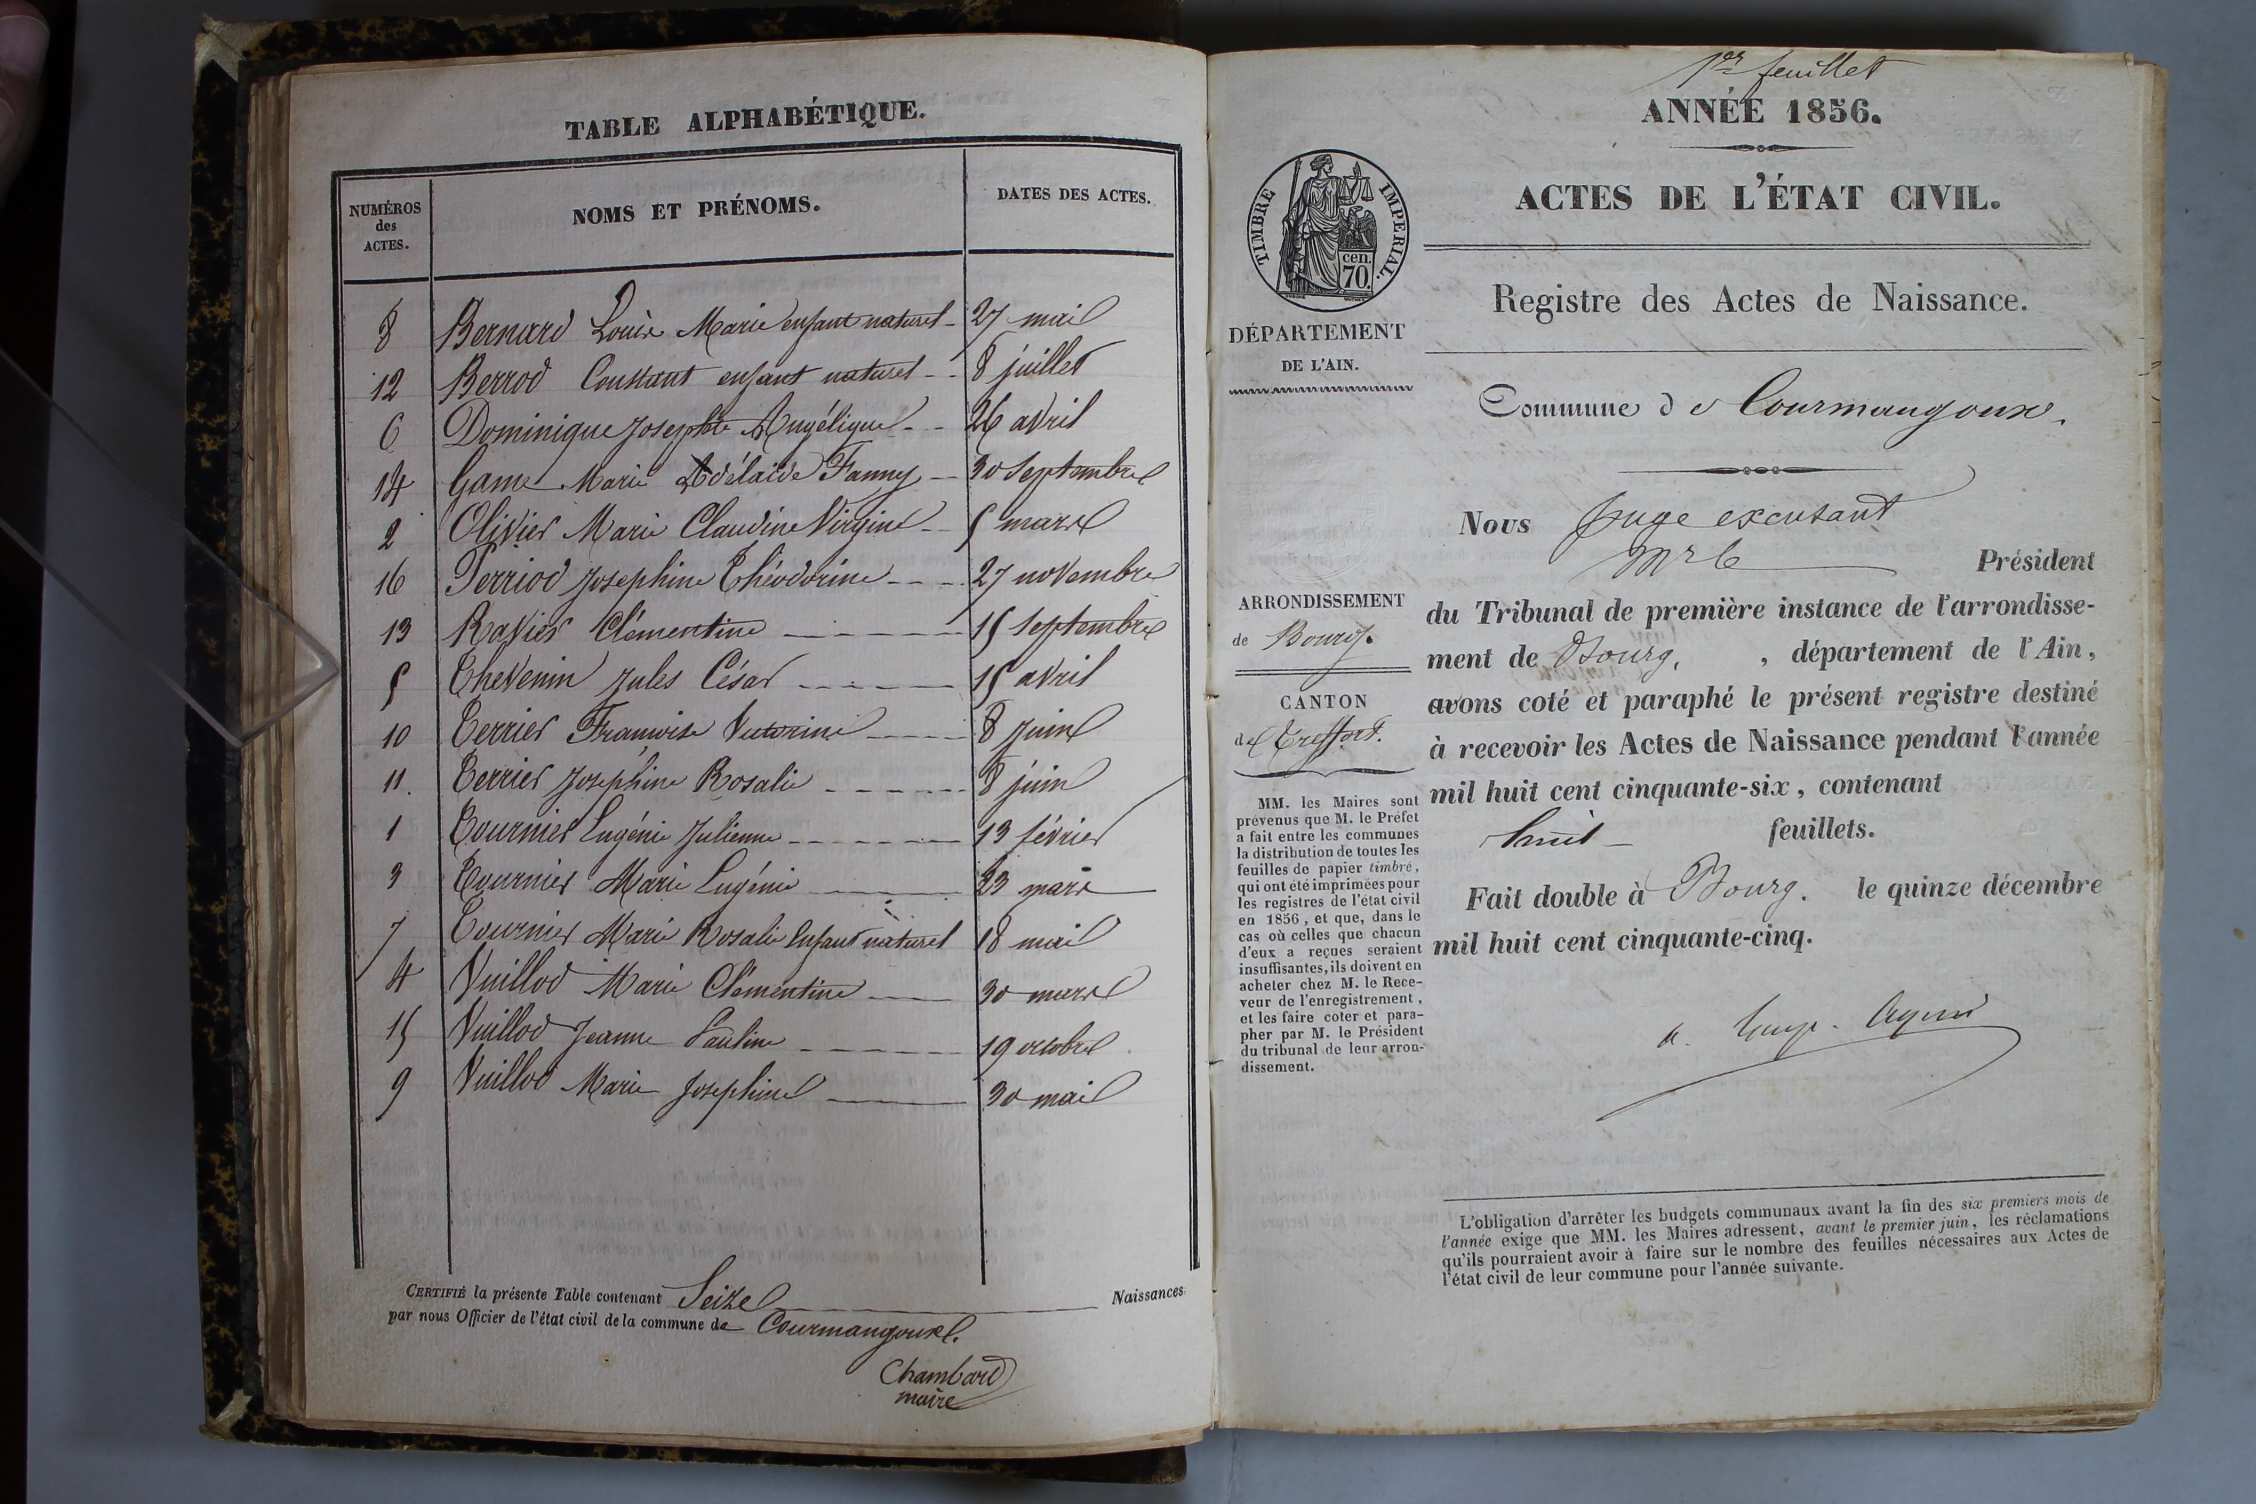 TABLE ALPHABÉTIQUE.
NUMÉROS
des
ACTES.
NOMS ET PRÉNOMS.
DATES DES ACTES.
8 Bernard Louise Marie enfant naturel 27 mai
12 Berrod Constant enfant naturel 8 juillet
6 Dominique Josephte Angélique 26 avril
14 Game Marie Adélaide Fanny 30 septembre
2 Olivier Marie Claudine Virginie 5 mars
16 Perriod Josephine Théodorine 27 novembre
13 Ravier Clémentine 15 septembre
5 Thevenin Jules César 15 avril
10 Terrier Francoise Victorine 8 juin
11. Terrier Joséphine Rosalie 8 juin
1 Tournier Eugénie Julienne 13 février
3 Tournier Marie Eugénie 23 mars
7 Tournier Marie Rosalie Enfant naturel 18 mai
4 Vuillod Marie Clémentine 30 mars
15 Vuillod Jeanne Pauline 19 octobre
9 Vuillod Marie Josephine 30 mai
CERTIFIÉ la présente Table contenant Seize Naissances
par nous Officier de l'état civil de la commune de Courmangoux.
Chambard
maire
1er feuillet
ANNÉE 1856.
ACTES DE L'ÉTAT CIVIL.
Registre des Actes de Naissance.
TIMBRE IMPERIAL.
cen.
70.
DÉPARTEMENT
DE L'AIN.
Commune de Courmangoux.
ARRONDISSEMENT
de Bourg.
CANTON
de Treffort.
MM. les Maires sont
prévenus que M. le Préfet
a fait entre les communes
la distribution de toutes les
feuilles de papier timbré,
qui ont été imprimées pour
les registres de l'état civil
en 1856, et que, dans le
cas où celles que chacun
d'eux a reçues seraient
insuffisantes, ils doivent en
acheter chez M. le Rece-
veur de l'enregistrement,
et les faire coter et para-
pher par M. le Président
du tribunal de leur arron-
dissement.
Nous Juge excusant
Mr le Président
du Tribunal de première instance de l'arrondisse-
ment de Bourg, , département de l'Ain,
avons coté et paraphé le présent registre destiné
à recevoir les Actes de Naissance pendant l'année
mil huit cent cinquante-six, contenant
huit feuillets.
Fait double à Bourg. le quinze décembre
mil huit cent cinquante-cinq.
L'obligation d'arrêter les budgets communaux avant la fin des six premiers mois de
l'année exige que MM. les Maires adressent, avant le premier juin, les réclamations
qu'ils pourraient avoir à faire sur le nombre des feuilles nécessaires aux Actes de
l'état civil de leur commune pour l'année suivante.